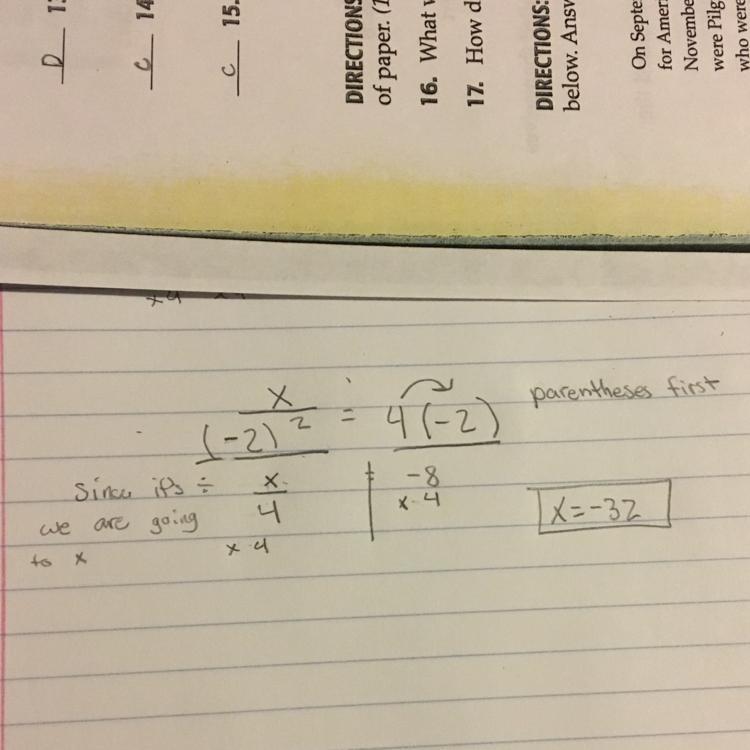 D 13
C 14
C 15.
DIRECTIONS
of paper. (
16. What
17. How d
DIRECTIONS:
below. Answ
On Septe
for Ameri
November
were Pilg
who were
x 4
x
(-2)² = 4(-2)
parentheses first
Since it's ÷
we are going
to x
x
4
x 4
= -8
x 4
x = -32